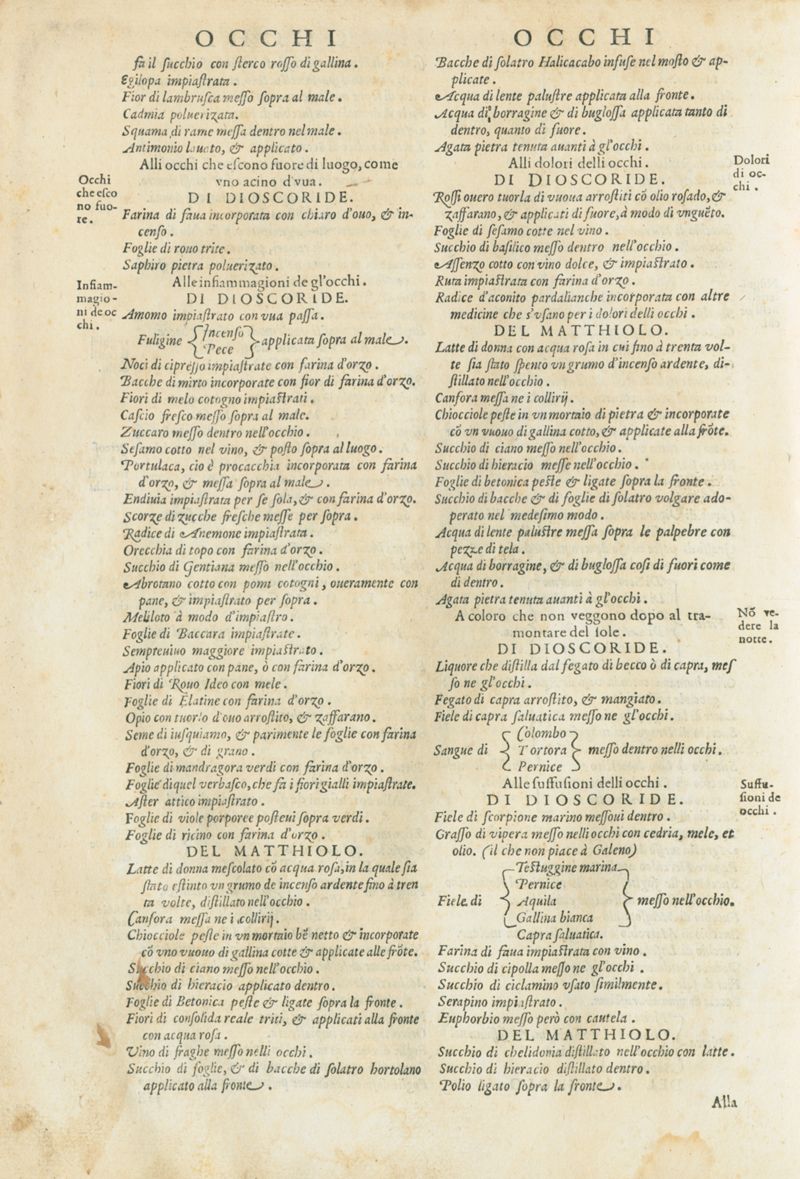 OCCHI
fa il succhio con sterco rosso di gallina.
Egilopa impiastrata.
Fior di lambrusca messo sopra al male.
Cadmia poluerizata.
Squama di rame messa dentro nel male.
Antimonio lauato, & applicato.
Alli occhi che escono fuore di luogo, come
vno acino d'vua.
Occhi
che esco
no fuo-
re.
DI DIOSCORIDE.
Farina di faua incorporata con chiaro d'ouo, & in-
censo.
Foglie di rouo trite.
Saphiro pietra poluerizato.
Alle infiammagioni de gl'occhi.
Infiam-
magio-
ni de oc
chi.
DI DIOSCORIDE.
Amomo impiastrato con vua passa.
Fuligine { Incenso Pece } applicata sopra al male.
Noci di cipresso impiastrate con farina d'orzo.
Bacche di mirto incorporate con fior di farina d'orzo.
Fiori di melo cotogno impiastrati.
Cascio fresco messo sopra al male.
Zuccaro messo dentro nell'occhio.
Sesamo cotto nel vino, & posto sopra al luogo.
Portulaca, cio è procacchia incorporata con farina
d'orzo, & messa sopra al male.
Endiuia impiastrata per se sola, & con farina d'orzo.
Scorze di zucche fresche messe per sopra.
Radice di Anemone impiastrata.
Orecchia di topo con farina d'orzo.
Succhio di Gentiana messo nell'occhio.
Abrotano cotto con pomi cotogni, oueramente con
pane, & impiastrato per sopra.
Meliloto à modo d'impiastro.
Foglie di Baccara impiastrate.
Sempreuiuo maggiore impiastrato.
Apio applicato con pane, ò con farina d'orzo.
Fiori di Rouo Ideo con mele.
Foglie di Elatine con farina d'orzo.
Opio con tuorlo d'ouo arrostito, & zaffarano.
Seme di iusquiamo, & parimente le foglie con farina
d'orzo, & di grano.
Foglie di mandragora verdi con farina d'orzo.
Foglie di quel verbasco, che fà i fiori gialli impiastrate.
Aster attico impiastrato.
Foglie di viole porporee posteui sopra verdi.
Foglie di ricino con farina d'orzo.
DEL MATTHIOLO.
Latte di donna mescolato cõ acqua rosa, in la quale sia
stato estinto vn grumo de incenso ardente fino à tren
ta volte, distillato nell'occhio.
Canfora messa ne i collirij.
Chiocciole peste in vn mortaio bẽ netto & incorporate
cõ vno vuouo di gallina cotte & applicate alle frõte.
Succhio di ciano messo nell'occhio.
Succhio di hieracio applicato dentro.
Foglie di Betonica peste & ligate sopra la fronte.
Fiori di consolida reale triti, & applicati alla fronte
con acqua rosa.
Vino di fraghe messo nelli occhi.
Succhio di foglie, & di bacche di solatro hortolano
applicato alla fronte.
OCCHI
Bacche di solatro Halicacabo infuse nel mosto & ap-
plicate.
Acqua di lente palustre applicata alla fronte.
Acqua di borragine & di buglossa applicata tanto di
dentro, quanto di fuore.
Agata pietra tenuta auanti à gl'occhi.
Alli dolori delli occhi.
Dolori
di oc-
chi.
DI DIOSCORIDE.
Rossi ouero tuorla di vuoua arrostiti cõ olio rosado, &
zaffarano, & applicati di fuore, à modo di vnguẽto.
Foglie di sesamo cotte nel vino.
Succhio di basilico messo dentro nell'occhio.
Assenzo cotto con vino dolce, & impiastrato.
Ruta impiastrata con farina d'orzo.
Radice d'aconito pardalianche incorporata con altre
medicine che s'vsano per i dolori delli occhi.
DEL MATTHIOLO.
Latte di donna con acqua rosa in cui fino à trenta vol-
te sia stato spento vn grumo d'incenso ardente, di-
stillato nell'occhio.
Canfora messa ne i collirij.
Chiocciole peste in vn mortaio di pietra & incorporate
cõ vn vuouo di gallina cotto, & applicate alla frõte.
Succhio di ciano messo nell'occhio.
Succhio di hieracio messe nell'occhio.
Foglie di betonica peste & ligate sopra la fronte.
Succhio di bacche & di foglie di solatro volgare ado-
perato nel medesimo modo.
Acqua di lente palustre messa sopra le palpebre con
pezze di tela.
Acqua di borragine, & di buglossa cosi di fuori come
di dentro.
Agata pietra tenuta auanti à gl'occhi.
A coloro che non veggono dopo al tra-
montare del sole.
Nõ ve-
dere la
notte.
DI DIOSCORIDE.
Liquore che distilla dal fegato di becco ò di capra, mes
so ne gl'occhi.
Fegato di capra arrostito, & mangiato.
Fiele di capra saluatica messo ne gl'occhi.
Sangue di { Colombo Tortora Pernice } messo dentro nelli occhi.
Alle suffusioni delli occhi.
Suffu-
sioni de
occhi.
DI DIOSCORIDE.
Fiele di scorpione marino messoui dentro.
Grasso di vipera messo nelli occhi con cedria, mele, et
olio. (il che non piace à Galeno)
Fiele di { Testuggine marina
Pernice
Aquila
Gallina bianca
Capra saluatica. } messo nell'occhio.
Farina di faua impiastrata con vino.
Succhio di cipolla messo ne gl'occhi.
Succhio di ciclamino vsato similmente.
Serapino impiastrato.
Euphorbio messo però con cautela.
DEL MATTHIOLO.
Succhio di chelidonia distillato nell'occhio con latte.
Succhio di hieracio distillato dentro.
Polio ligato sopra la fronte.
Alla